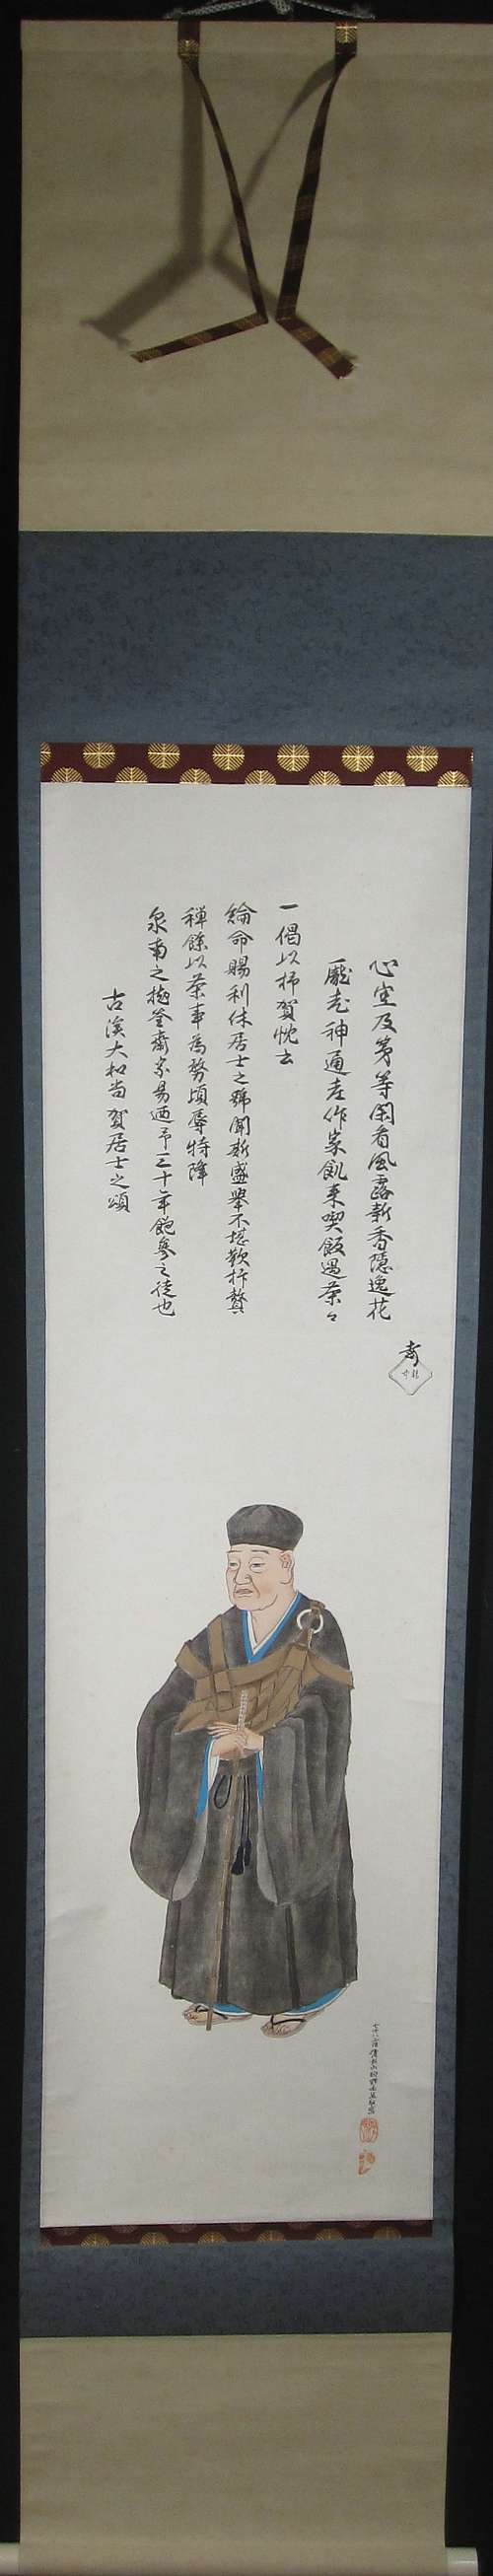 古溪大和尚賀居士之頌
泉南之抛筌齋宗易廼予三十年飽參之徒也
禪餘以茶事為務頃辱特降
綸命賜利休居士之號聞斯盛擧不堪歓抃贅
一偈以抒賀忱云
龐老神通老作家飢来喫飯遇茶々
心空及第等閑看風露新香隠逸花